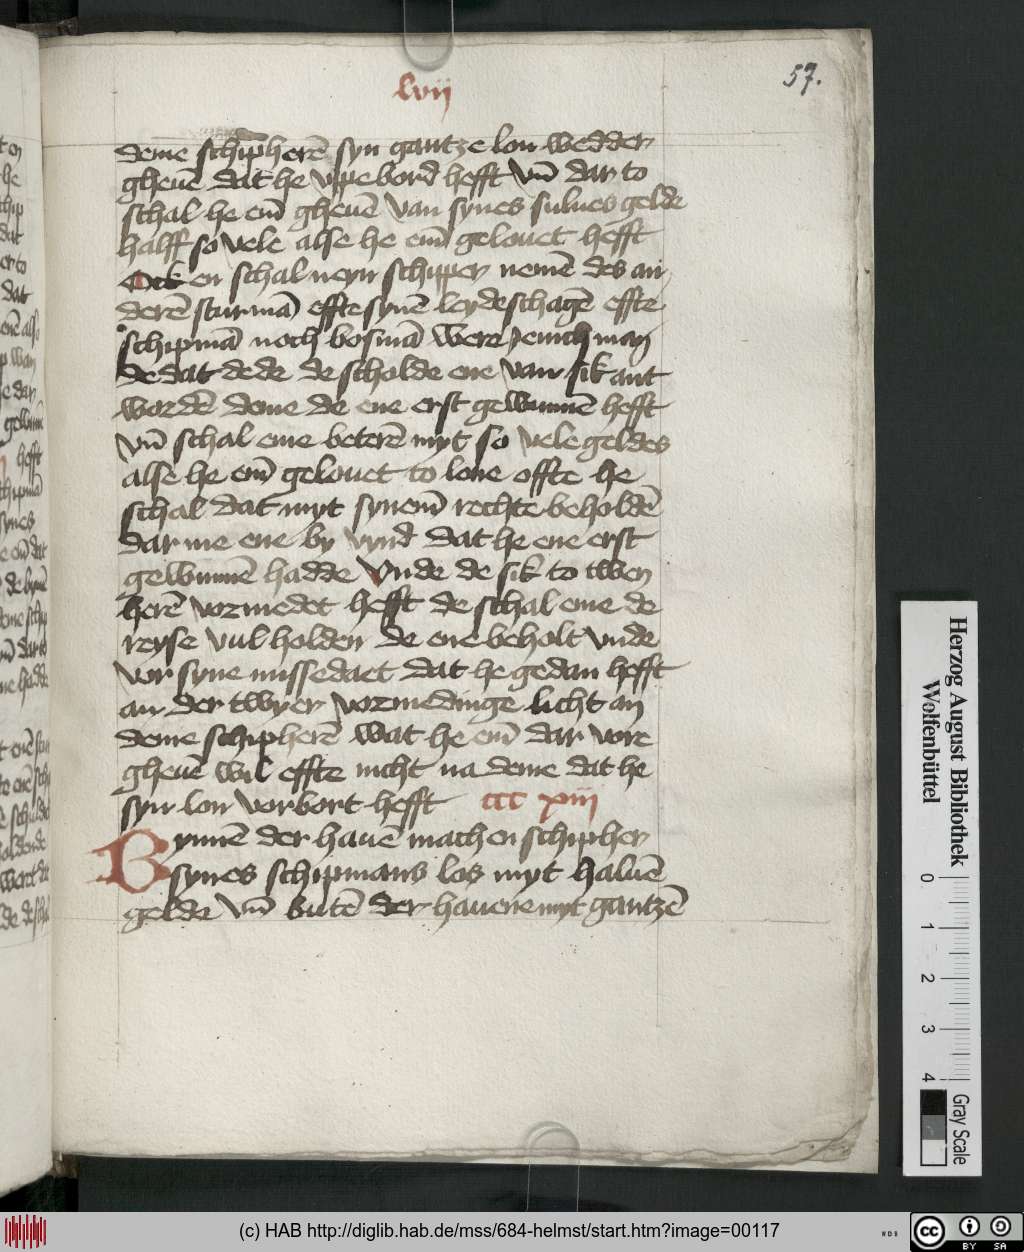 lvij
57.
deme schipherē syn gantze lon wedder
gheuē dat he vppe bord hefft vn̄ dar to
schal he em̄ gheuē van synes sulues gelde
halff so vele alse he em̄ gelouet hefft
Ock en schal neyn schipper nemē des an
derē sturmā effte synē leydeschagē effte
schipmā noch bosmā were jenich man
de dat dede de scholde ene van sik ant
wordē deme de ene erst gewunnē hefft
vn̄ schal eme beterē myt so vele geldes
alse he em̄ gelouet to lone offte he
schal dat myt synem̄ rechte beholdē
dar me ene by vynd̄ dat he ene erst
gewunnē hadde Vnde de sik to twen
herē vormedet hefft de schal eme de
reyse vul holden de ene beholt vnde
vor syne missedaet dat he gedan hefft
an der twyer vormedinge licht an
deme schipherē wat he em̄ dar vore
gheuē wil effte nicht na deme dat he
syn lon vorbort hefft ccc xiij
Bynnē der hauē mach en schipher
synes schipmans los myt haluē
gelde vn̄ butē der hauene myt gantzē
Herzog August Bibliothek
Wolfenbüttel
0 1 2 3 4
Gray Scale
(c) HAB http://diglib.hab.de/mss/684-helmst/start.htm?image=00117
WDB
cc
BY SA